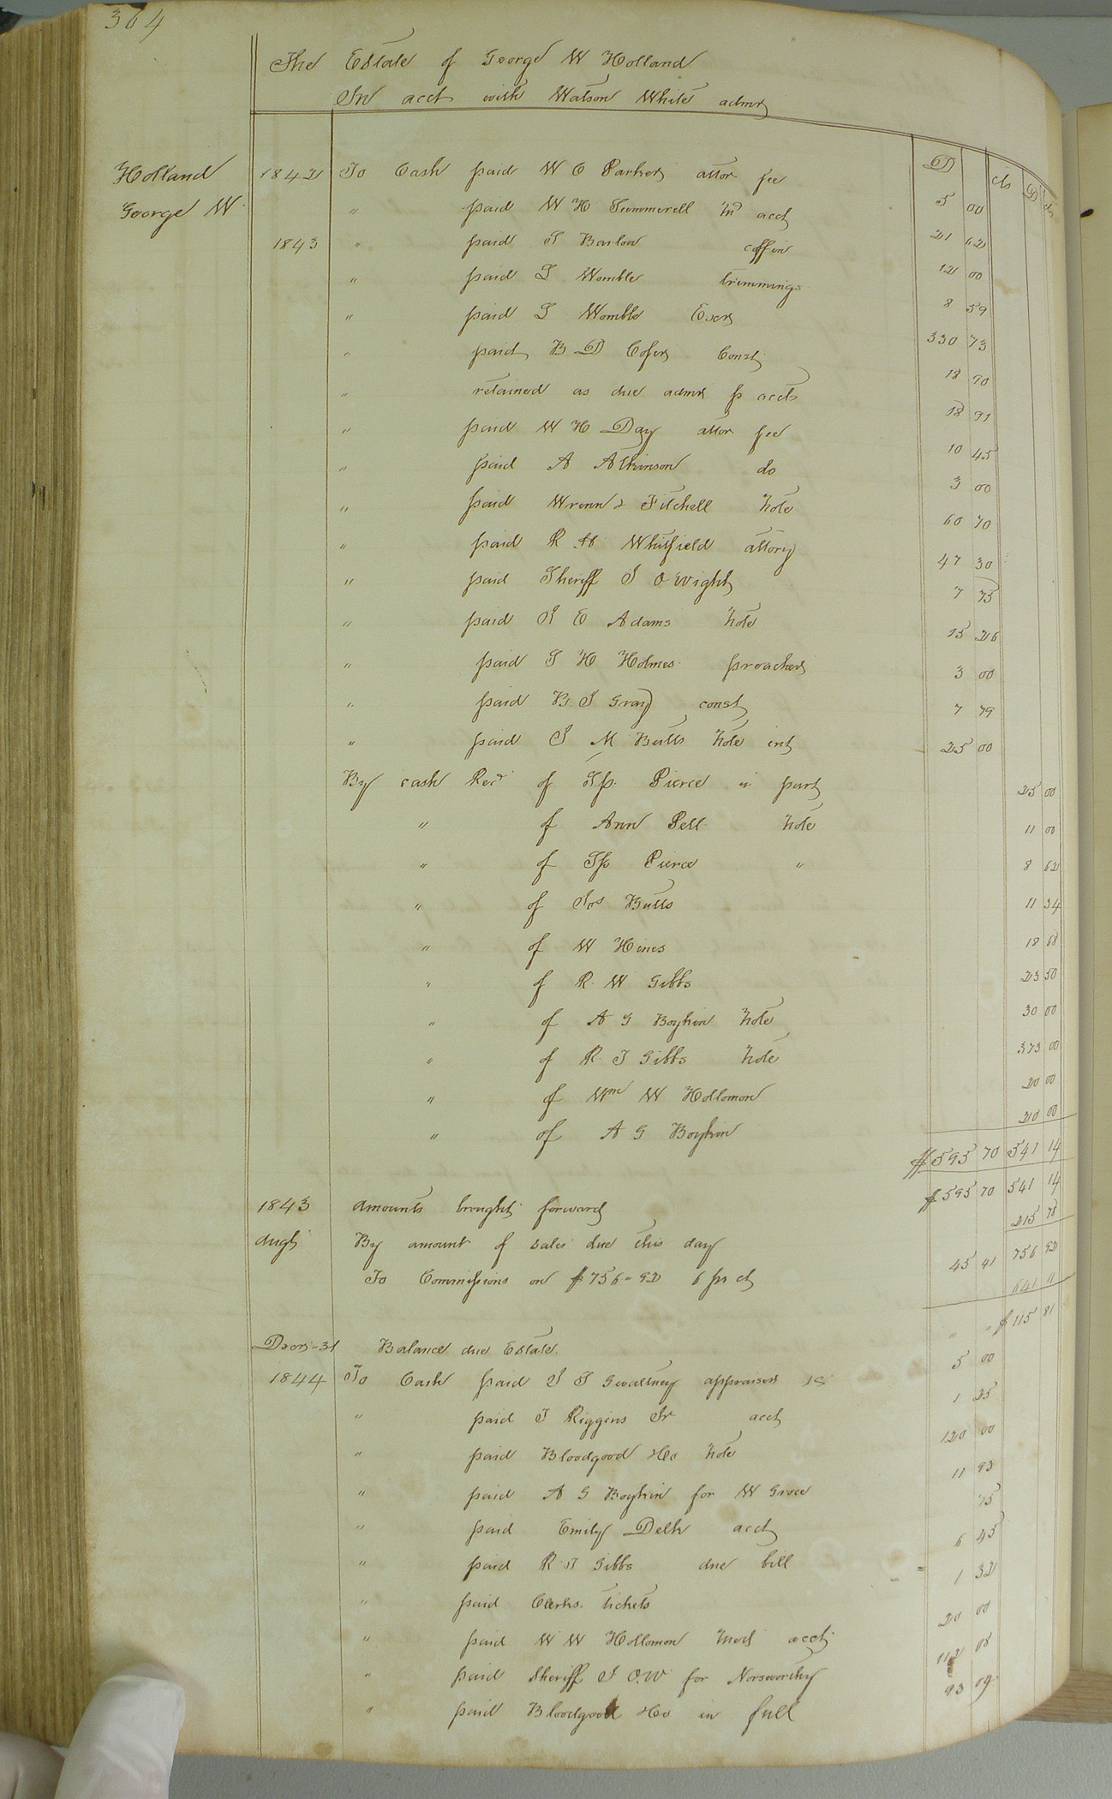 364
The Estate of George W Holland
In acct with Watson White admr
D cts D cts
Holland 1842 To Cash paid W O Parker attor fee 5 00
George W. " paid W H Summerell Md acct 21 62
1843 " paid J Barlow coffin 12 00
" paid J Womble trimmings 8 59
" paid J Womble Exors 330 73
" paid B D Cofer Const 18 90
" retained as due admr p accts 18 91
" paid W H Day attor fee 10 45
" paid A Atkinson do 3 00
" paid Wrenn & Fitchell note 60 70
" paid R H Whitfield attory 47 30
" paid Sheriff J O Wight 7 75
" paid J E Adams note 15 26
" paid J H Holmes preacher 3 00
" paid B J Gray const 7 79
" paid J M Butts note int 25 00
By cash Recd of Pierce in part 25 00
" of Ann Pell note 11 00
" of Pierce " 8 62
" of Jos Butts 11 34
" of W Hines 18 68
" of R W Gibbs 23 50
" of A G Boykin note 30 00
" of R J Gibbs note 373 00
" of Wm W Hollomon 20 00
" of A G Boykin 20 00
$595 70 541 14
1843 amounts brought forward $595 70 541 14
Augt By amount of sales due this day 215 78
To Commissions on $756-92 6 pr ct 45 41 756 92
641 11
Decr-31 Balance due Estate. " " $115 81
1844 To Cash paid J J Gwaltney appraiser 5 00
" paid J Riggins Sr acct 1 25
" paid Bloodgood &Co note 120 00
" paid A G Boykin for W Grove 11 93
" paid Emily Delk acct 75
" paid R J Gibbs due bill 6 45
" paid Clerks tickets 1 32
" paid W W Hollomon Med acct 20 00
" paid Sheriff J O.W for Norsworthy 112 08
" paid Bloodgood &Co in full 93 09